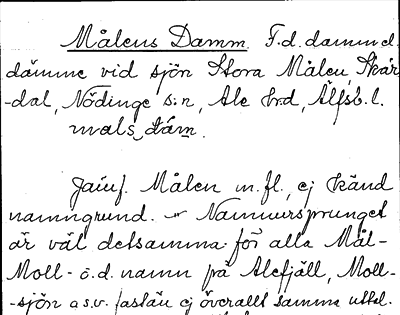 Målens Damm. F.d. damm el.
dämme vid sjön Stora Målen, Skår-
-dal, Nödinge s:n, Ale hrd, Älfsb. l.
mals dám.
Jämf. Målen m.fl., ej känd
namngrund. Namnursprunget
är väl detsamma för alla Mål-
Moll- o.d. namn på Alefjäll, Moll-
-sjön a.s.v. fastän ej överallt samma uttal.